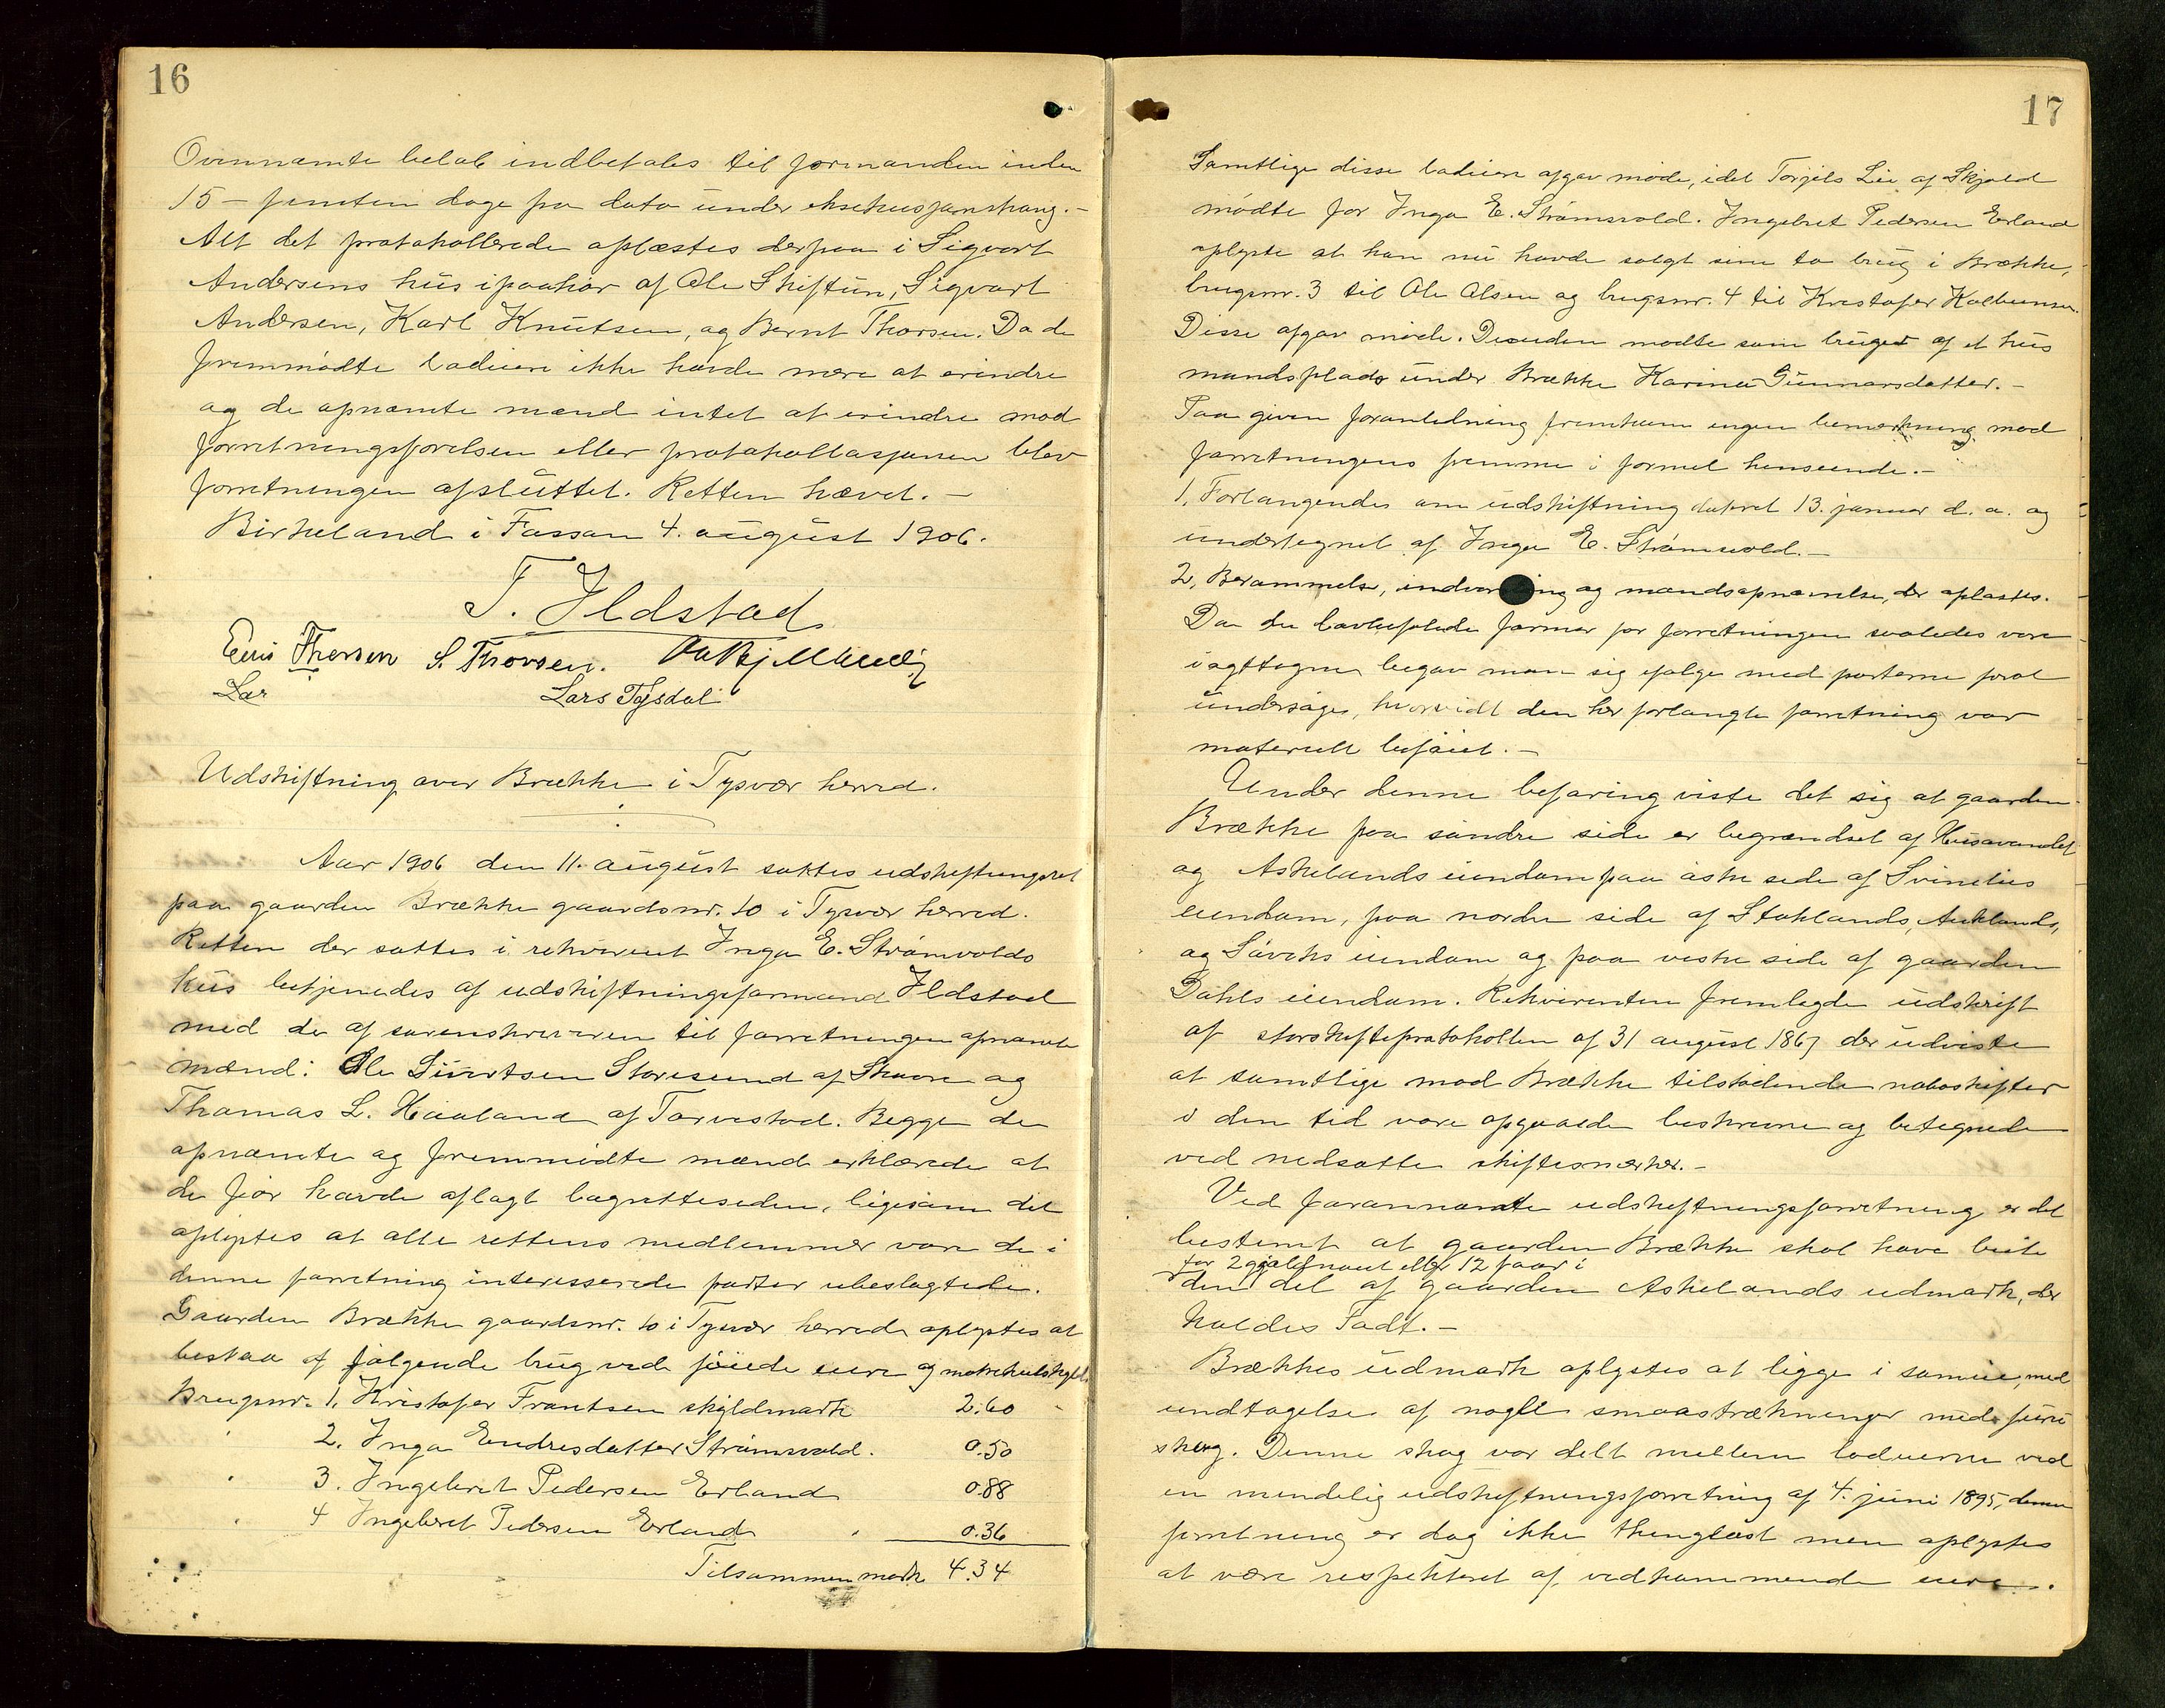 16
Ovennævnte beløb indbetales til formanden inden
15 – femten dage fra dato under eksekusjonstvang. –
Alt det protokollerede oplæstes derpaa i Sigvart
Andersens hus i paahør af Ole Skiftun, Sigvart
Andersen, Karl Knutsen, og Bernt Thorsen. Da de
fremmødte lodeiere ikke havde mere at erindre
og de opnævnte mænd intet at erindre mod
forretningsførelsen eller protokollasjonen blev
forretningen afsluttet. Retten hævet. –
Birkeland i Fossan 4. august 1906.
T. Ildstad
Thorsen S. Thorsen.
Lar Lars Tysdal
Udskiftning over Brække i Tysvær herred.
Aar 1906 den 11. august sattes udskiftningsret
paa gaarden Brække gaardsnr. 10 i Tysvær herred.
Retten der sattes i rekvirent Inga E. Strømvolds
hus betjenedes af udskiftningsformand Ildstad
med de af sorenskriveren til forretningen opnævnte
mænd: Ole Sivertsen Storesund af Skaare og
Thomas L. Haaland af Torvestad. Begge de
opnævnte og fremmødte mænd erklærede at
de før havde aflagt lagretteseden, ligesom det
oplystes at alle rettens medlemmer vare de i
denne forretning interesserede parter ubeslægtede.
Gaarden Brække gaardsnr. 10 i Tysvær herred oplystes at
bestaa af følgende brug ved føiede eiere og matrikulskyld.
Brugsnr. 1. Kristofer Frantsen skyldmark 2.60
" 2. Inga Endresdatter Strømsvold. 0.50
" 3. Ingebret Pedersen Erland 0.88
" 4 Ingebret Pedersen Erland " 0.36
Tilsammen mark 4.34
17
Samtlige disse lodeiere afgav møde, idet Torjels Lie af Skjold
mødte for Inga E. Strømsvold. Ingebret Pedersen Erland
oplyste at han nu havde solgt sine to brug i Brække,
brugsnr. 3 til Ole Olsen og brugsnr. 4 til Kristofer Kolbensen.
Disse afgav møde. Desuden mødte som bruger af et hus
mandsplads under Brække Karina Gunnarsdatter. –
Paa given foranledning fremkom ingen bemærkning mod
forretningens fremme i formel henseende. –
1. Forlangendes om udskiftning dateret 13. januar d. a. og
undertegnet af Inga E. Strømsvold. –
2, Berammelse, indvarsling og mandsopnævnelse, der oplæstes.
Da de lovbefalede former for forretningen saaledes vare
iagttagne begav man sig ifølge med parterne forat
undersøge, hvorvidt den her forlangte forretning var
materielt beføiet. –
Under denne befaring viste det sig at gaarden
Brække paa søndre side er begrændset af Husavandet
og Askelands eiendom paa østre side af Svinelies
eiendom, paa nordre side af Stoklands, Auklands,
og Søviks eiendom og paa vestre side af gaarden
Dahls eiendom. Rekvirenten fremlagde udskrift
af storskifteprotokollen af 31 august 1867 der udviste
at samtlige mod Brække tilstødende naboskifter
i den tid vare opgaaede beskrevne og betegnede
ved nedsatte skiftesmerker. –
Ved forannævnte udskiftningsforretning er det
bestemt at gaarden Brække skal have beite
for 2 gjældnaut eller 12 faar i
den del af gaarden Askelands udmark, der
kaldes Todt. –
Brækkes udmark oplystes at ligge i sameie, med
undtagelse af nogle smaastrækninger med furu
skog. Denne skog var delt mellem lodeierne ved
en mindelig udskiftningsforretning af 4. juni 1895, denne
forretning er dog ikke thinglæst men oplystes
at være respekteret af vedkommende eiere.